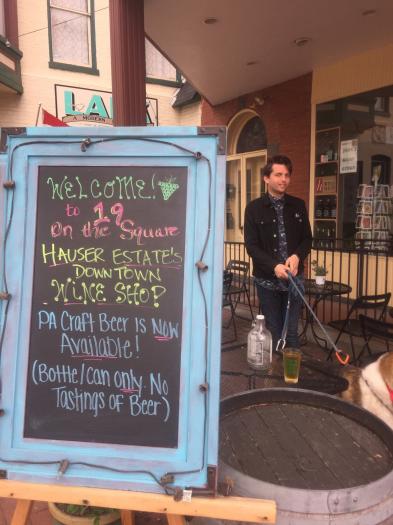 WELCOME!
to 19
On the Square
HAUSER ESTATE'S
DOWNTOWN
WINE SHOP
PA CRAFT BEER IS NOW
AVAILABLE!
(BOTTLE/CAN ONLY. NO
TASTINGS OF BEER)
LARK
A MODERN